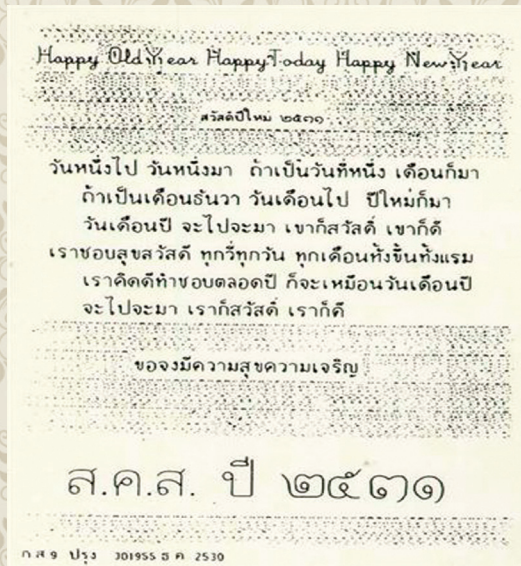 Happy Old Year Happy Today Happy New Year
สวัสดีปีใหม่ ๒๕๓๑
วันหนึ่งไป วันหนึ่งมา ถ้าเป็นวันที่หนึ่ง เดือนก็มา
ถ้าเป็นเดือนธันวา วันเดือนไป ปีใหม่ก็มา
วันเดือนปี จะไปจะมา เขาก็สวัสดี เขาก็ดี
เราชอบสุขสวัสดี ทุกวี่ทุกวัน ทุกเดือนทั้งขึ้นทั้งแรม
เราคิดดีทำชอบตลอดปี ก็จะเหมือนวันเดือนปี
จะไปจะมา เราก็สวัสดี เราก็ดี
ขอจงมีความสุขความเจริญ
ส.ค.ส. ปี ๒๕๓๑
ก ส 9 ปรุง 301955 ธ ค 2530